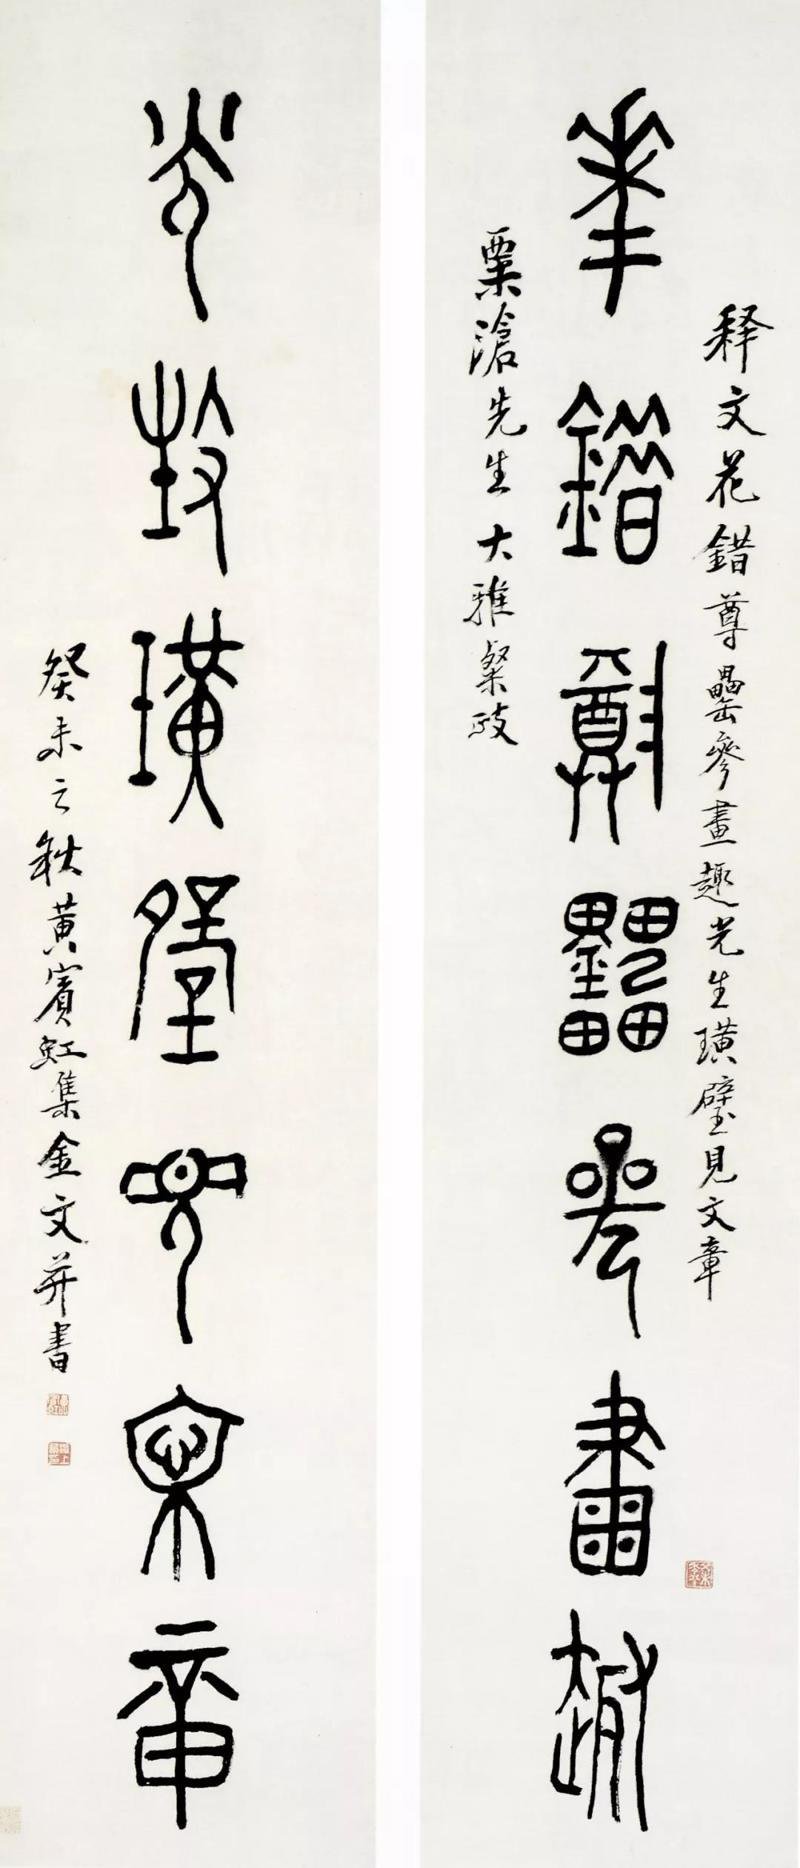 華錯尊罍參畫趣
光生璜璧見文章
释文花錯尊罍參畫趣光生璜璧見文章
粟滄先生大雅粲政
癸未之秋黄賓虹集金文并書